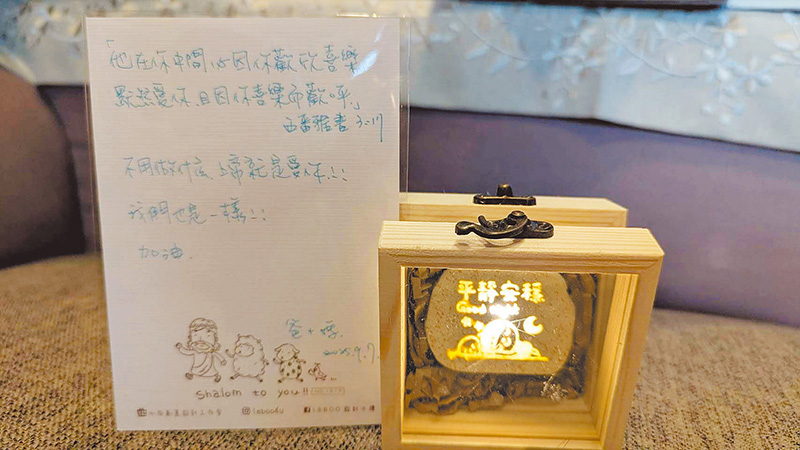 「他在你中間必因你歡欣喜樂
默然愛你且因你喜樂而歡呼。」
西番雅書 3:17
不用做什么 上帝就是愛你!!
我們也是一樣!!
加油.
爸+媽.
shalom to you!!
平靜安穩
Good night